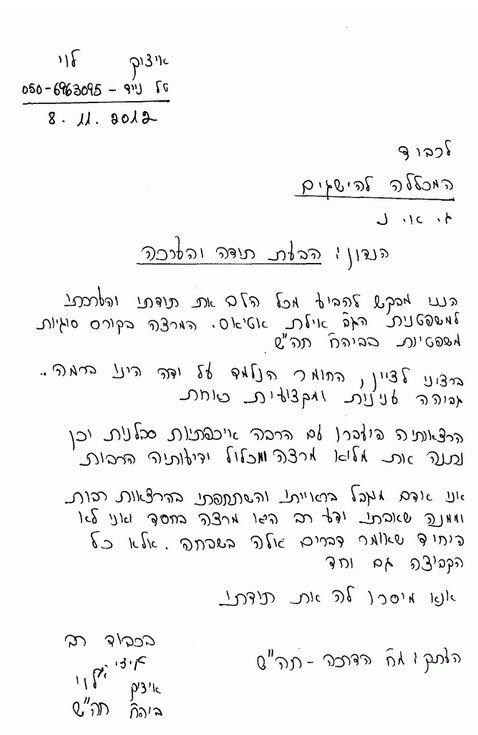 איציק לוי
טל נייד - 050-6963095
8.11.2012
לכבוד
המכללה להישגים
ג. א. נ
הנדון: הבעת תודה והערכה
הנני מבקש להביע מכל הלב את תודתי והערכתי
למשפטנית הגב' אילת אטיאס. המרצה בקורס סוגיות
משפטיות בביה"ח תה"ש
ברצוני לציין, החומר הנלמד על ידה הינו ברמה..
גבוהה עניינית ומקצועית
הרצאותיה הועברו עם הרבה איכפתיות סבלנית וכן
נתנה את מלוא מרצה ומכלול ידיעותיה הרבות
אני אדם מוגבל בראייתי והשתתפתי בהרצאות רבות
וממנה שאבתי ידע רב היא מרצה בחסד ואני לא
היחיד שאומר דברים אלה בשבחה. אלא כל
הקבוצה גם וחד
אנא מיסרו לה את תודתי
בכבוד רב
איציק לוי
תה"ש
העתק: הדרכה - תה"ש